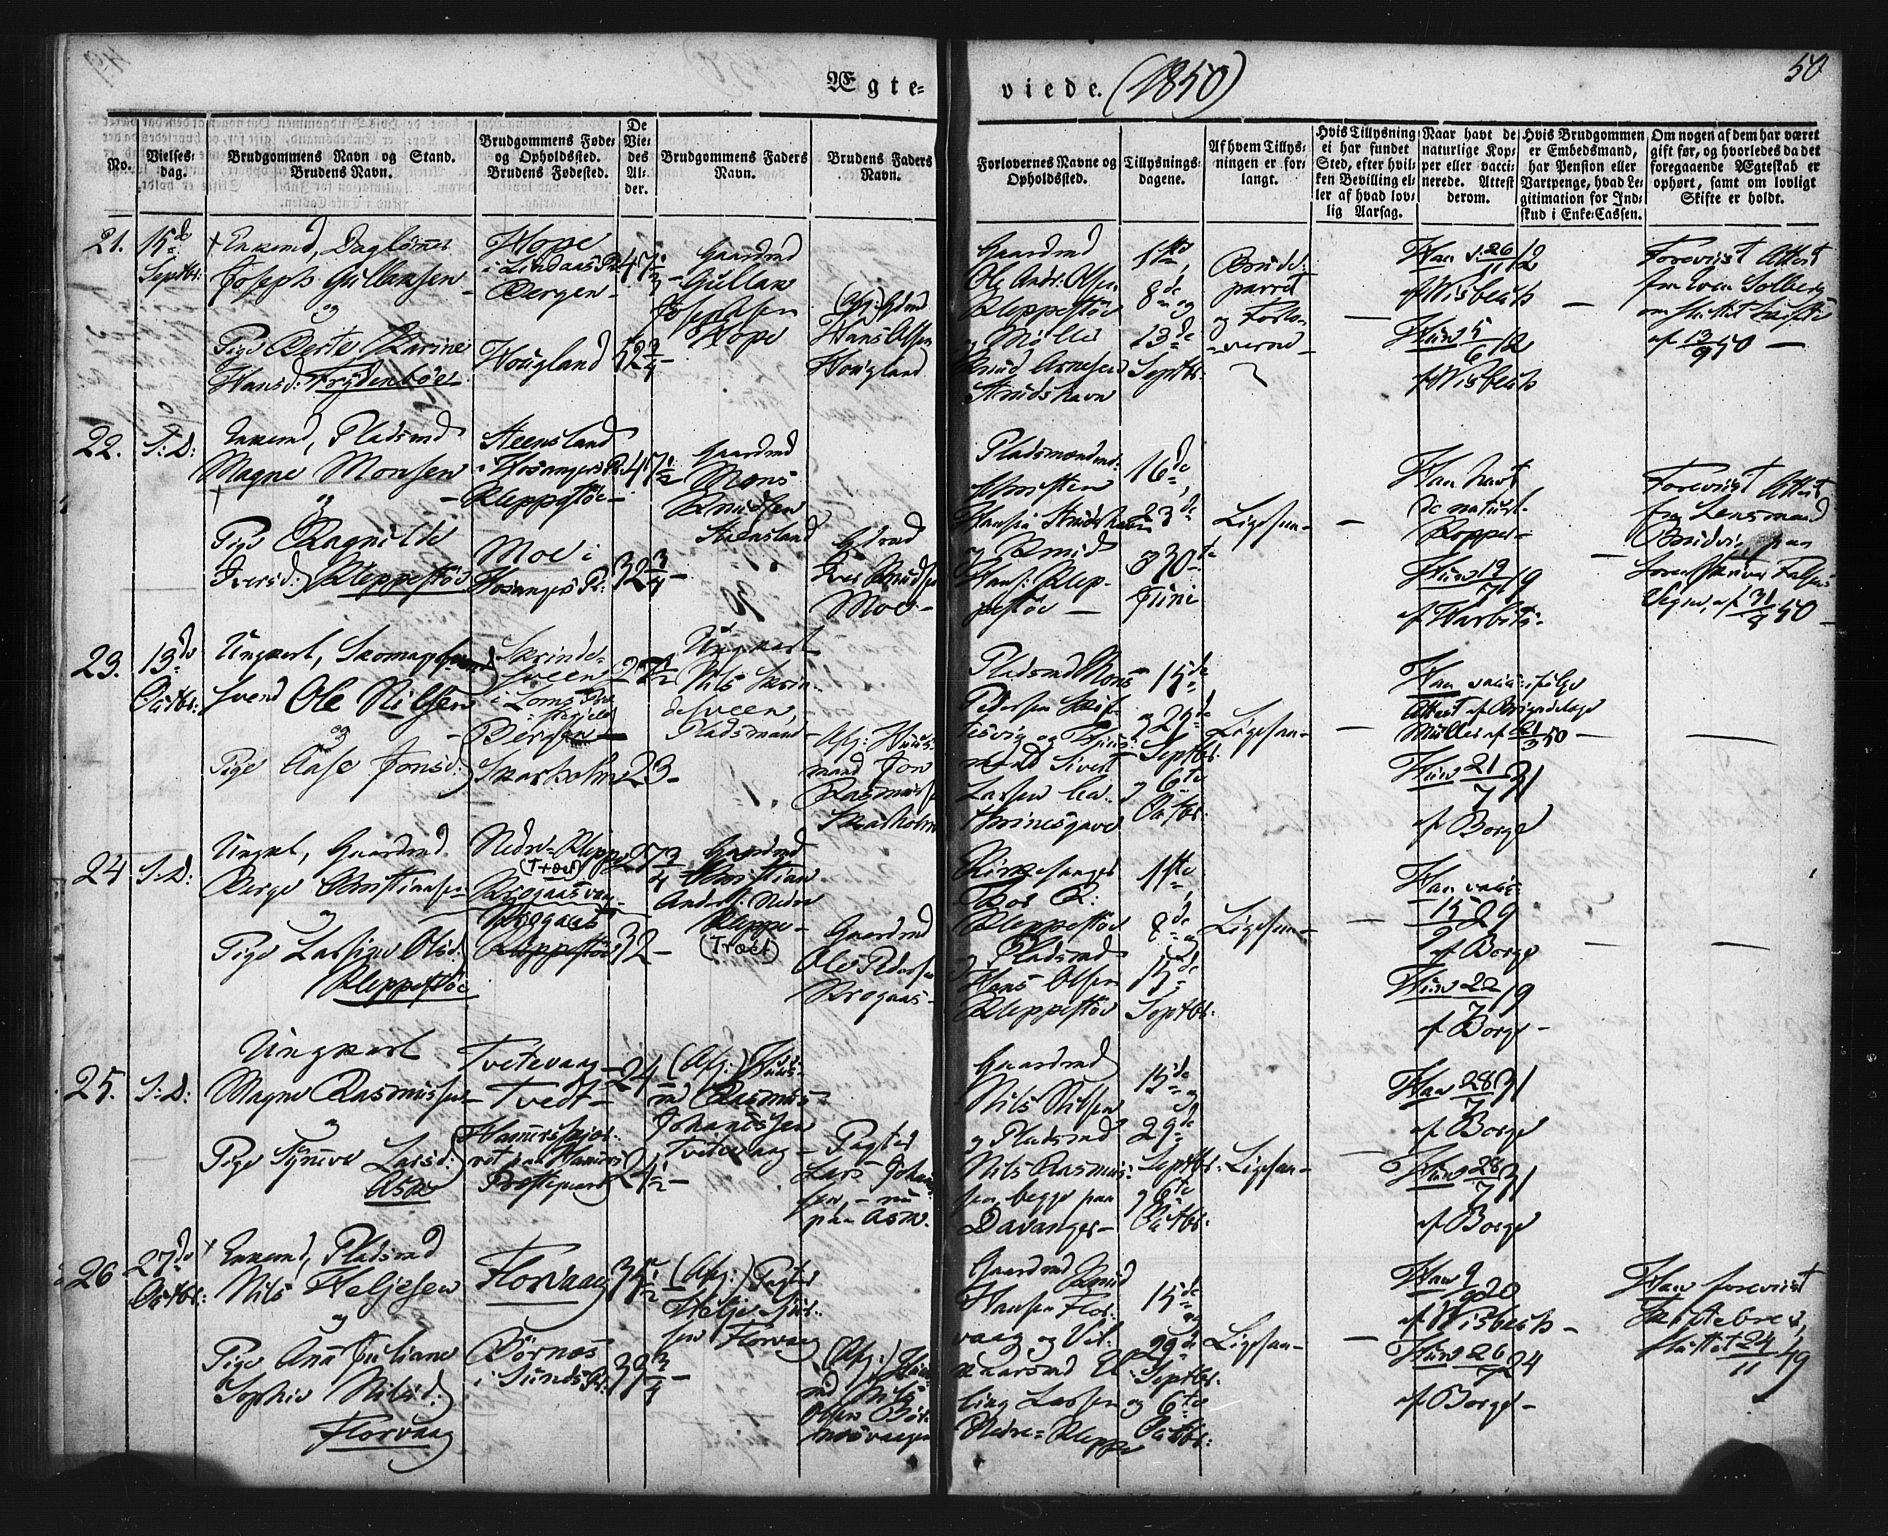 Ægte-
viede. (1850)
50
No.
Vielses-
dag.
Brudgommens Navn og Stand.
Brudens Navn.
Brudgommens Føde-
og Opholdssted.
Brudens Fødested.
De
Vie-
des
Al-
der.
Brudgommens Faders
Navn.
Brudens Faders
Navn.
Forlovernes Navne og
Opholdssted.
Tillysnings-
dagene.
Af hvem Tillys-
ningen er for-
langt.
Hvis Tillysning
ei har fundet
Sted, efter hvil-
ken Bevilling el-
ler af hvad lov-
lig Aarsag.
Naar havt de
naturlige Kop-
per eller vacci-
nerede. Attest
derom.
Hvis Brudgommen
er Embedsmand,
har Pension eller
Vartpenge, hvad Le-
gitimation for Ind-
skud i Enke-Cassen.
Om nogen af dem har været
gift før, og hvorledes da det
foregaaende Ægteskab er
ophørt, samt om lovligt
Skifte er holdt.
21.
15de
Septbr:
Enkemd, Daglönner
Joseph Gullaksen
og
Pige Berte Karine
Hansd: Frydenböe
Hope
i Lindaas Pr:
Bergen
Hougland
47½
52¾
Gaardmd
Gullak
Josephsen
Hope
(Afg:) Gdmd
Hans Olsen
Hougland
Gaardmd
Ole Andr: Olsen
Kleppestöe
og Möller
Knud Arnesen
Strudshavn
1ste,
8de og
13de
Septbr:
Brude-
parret
og Forlo-
verne
Han 26/11 12
af Wisbech
Hun 5/6 12
af Wisbech
Foreviist Attest
fra Sven Solberg
om sluttet Skifte
af 13/9 50 —
22.
S: D:
Enkemd, Pladsmd
Magne Monsen
og
Pige Ragnilde
Iversd: Kleppestöe
Steensland
i Hosangers Pr:
Kleppestöe
Moe i
Hosangers Pr:
47½
32¾
Gaardmd
Mons
Knudsen
Steensland
Gdmd
Iver Knudsen
Moe
Pladsmændene
Christen
Hansen Strudshavn
og Knud
Hans: Klep-
pestöe —
16de,
23de
og 30te
Juni
Ligesaa
Han havt
de naturl.
Kopper
Hun 19/7 19
af Harbitz
Foreviist Attest
fra Lensmand
31/8 50
23.
13de
Octbr:
Ungkarl, Skomager-
svend Ole Nilsen
og
Pige Aase Jonsd:
Skrinde-
sveen
i Loms Pr:
Bergen
Skarholm
27½
23
Ungkarl
Nils Skrin-
desveen,
Pladsmand
Afg: Huus-
mand Jon
Rasmusen
Skarholm
Pladsmd Mons
Pedersen Skif-
tesvig og Huus-
mand Sivert
Larsen Ca-
thrinesgave
15de
og 29de
Septbr:
og 6te
Octbr:
Ligesaa
Han vacc: ifölge
Attest af Brigadelæge
Müller af 21/3 50
Hun 21/7 31
af Borge
24
S: D:
Ungkl, Gaardmd.
Berge Christiansen
og
Pige Larsine Olsd:
Kleppestöe
Nedre-Kleppe
(Træet)
Krogaasvaag
Krogaas
Kleppestöe
27¾
32
Gaardmd
Christian
Anders: Nedre
Kleppe
(Træet)
Gaardmd
Ole Pedersen
Krogaas
Kirkesanger
Boe
Kleppestöe
og Pladsmd
Hans Olsen
Kleppestöe
1ste,
8de og
15de
Septbr:
Ligesaa
Han vacc:
15/9 29
af Borge
Hun 22/7 19
af Borge
25.
S: D:
Ungkarl
Magne Rasmussen
og
Pige Synneve Larsd:
Ask
Tvetevaag
Tvedt
Hammersskjær
Prestegjeld
24
24½
(Afg:) Huus-
md Rasmus
Johannesen
Tvetevaag
Pagter
Lars Johan-
sen, nu
paa Ask
Gaardmd
Nils Nilsen
og Pladsmd
Nils Rasmus-
sen, begge paa
Davanger
15de og
29de
Septbr:
og 6te
Octbr:
Ligesaa
Han 28/7 31
af Borge
Hun 28/7 31
af Borge
26
27de
Octbr:
Enkemd, Pladsmd
Nils Heljesen
og
Pige Ane Juliane
Sophie Nilsd:
Florvaag
Florvaag
Börnæs
i Sunds Pr:
35½
39¾
(Afg:) Pagter
Helje Lar-
sen Florvaag
(Afg:) Huus-
md Nils
Olsen Bör-
næsvaagen
Gaardmd Knud
Hansen Flor-
vaag og
El-
ling Larsen
Nedre-Kleppe
15de og
29de
Septbr:
og 6te
Octbr:
Ligesaa
Han 9/9 20
af Wisbech
Hun 26/7 24
af Borge
Han foreviist
Skiftebrev,
sluttet 24/11 49